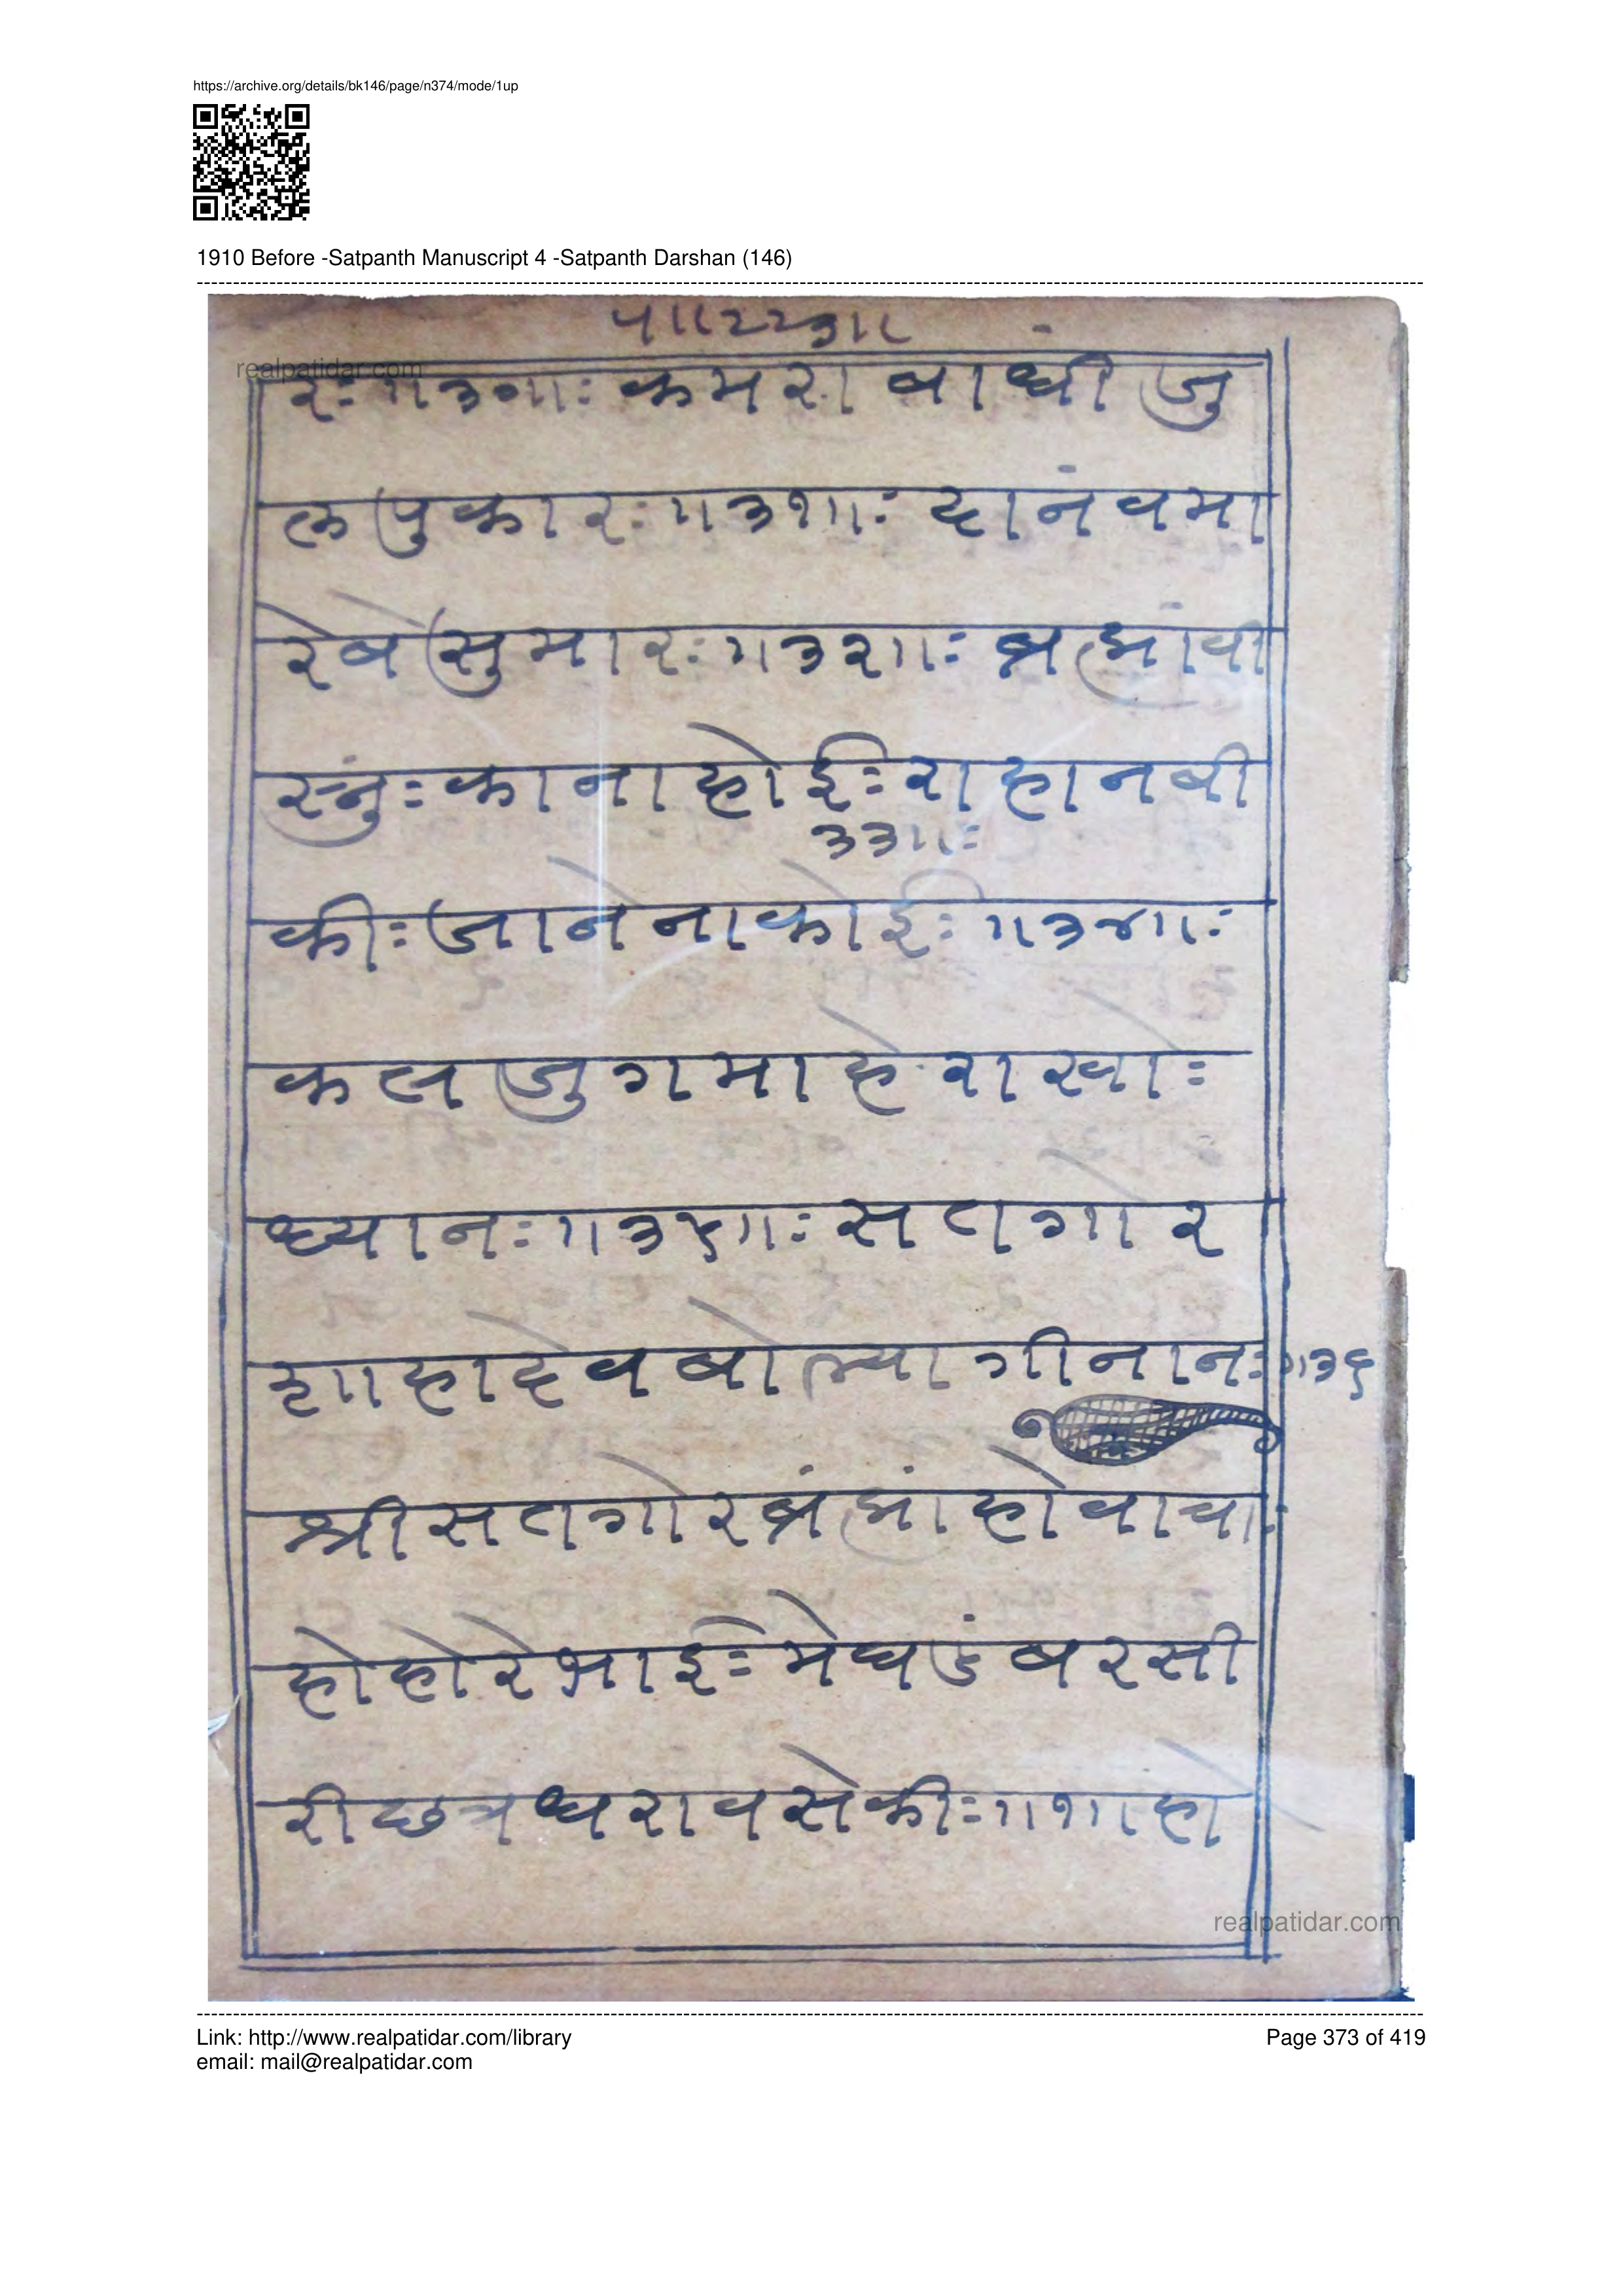 https://archive.org/details/bk146/page/n374/mode/1up
1910 Before -Satpanth Manuscript 4 -Satpanth Darshan (146)
realpatidar.com
रः॥३०॥ः कमरा बांधी जु
लपुकारः॥३१॥ः दानंवमा
रेबेसुमारः॥३२॥ः ब्रह्मांवी
स्नुंः कानाहोईः राहानबी
३३॥ः
कीः जानेनाकोईः ॥३४॥ः
कलजुगमाहेराखोः
ध्यानः॥३५॥ः सतगोर
शाहादेवबोल्यागीनानः॥३६
श्रीसतगोरब्रंह्मांहोवाचाः
होहोरेभाईः मेघडंबरसी
रीछत्रधरावसेकीः॥१॥हो
realpatidar.com
Link: http://www.realpatidar.com/library
Page 373 of 419
email: mail@realpatidar.com